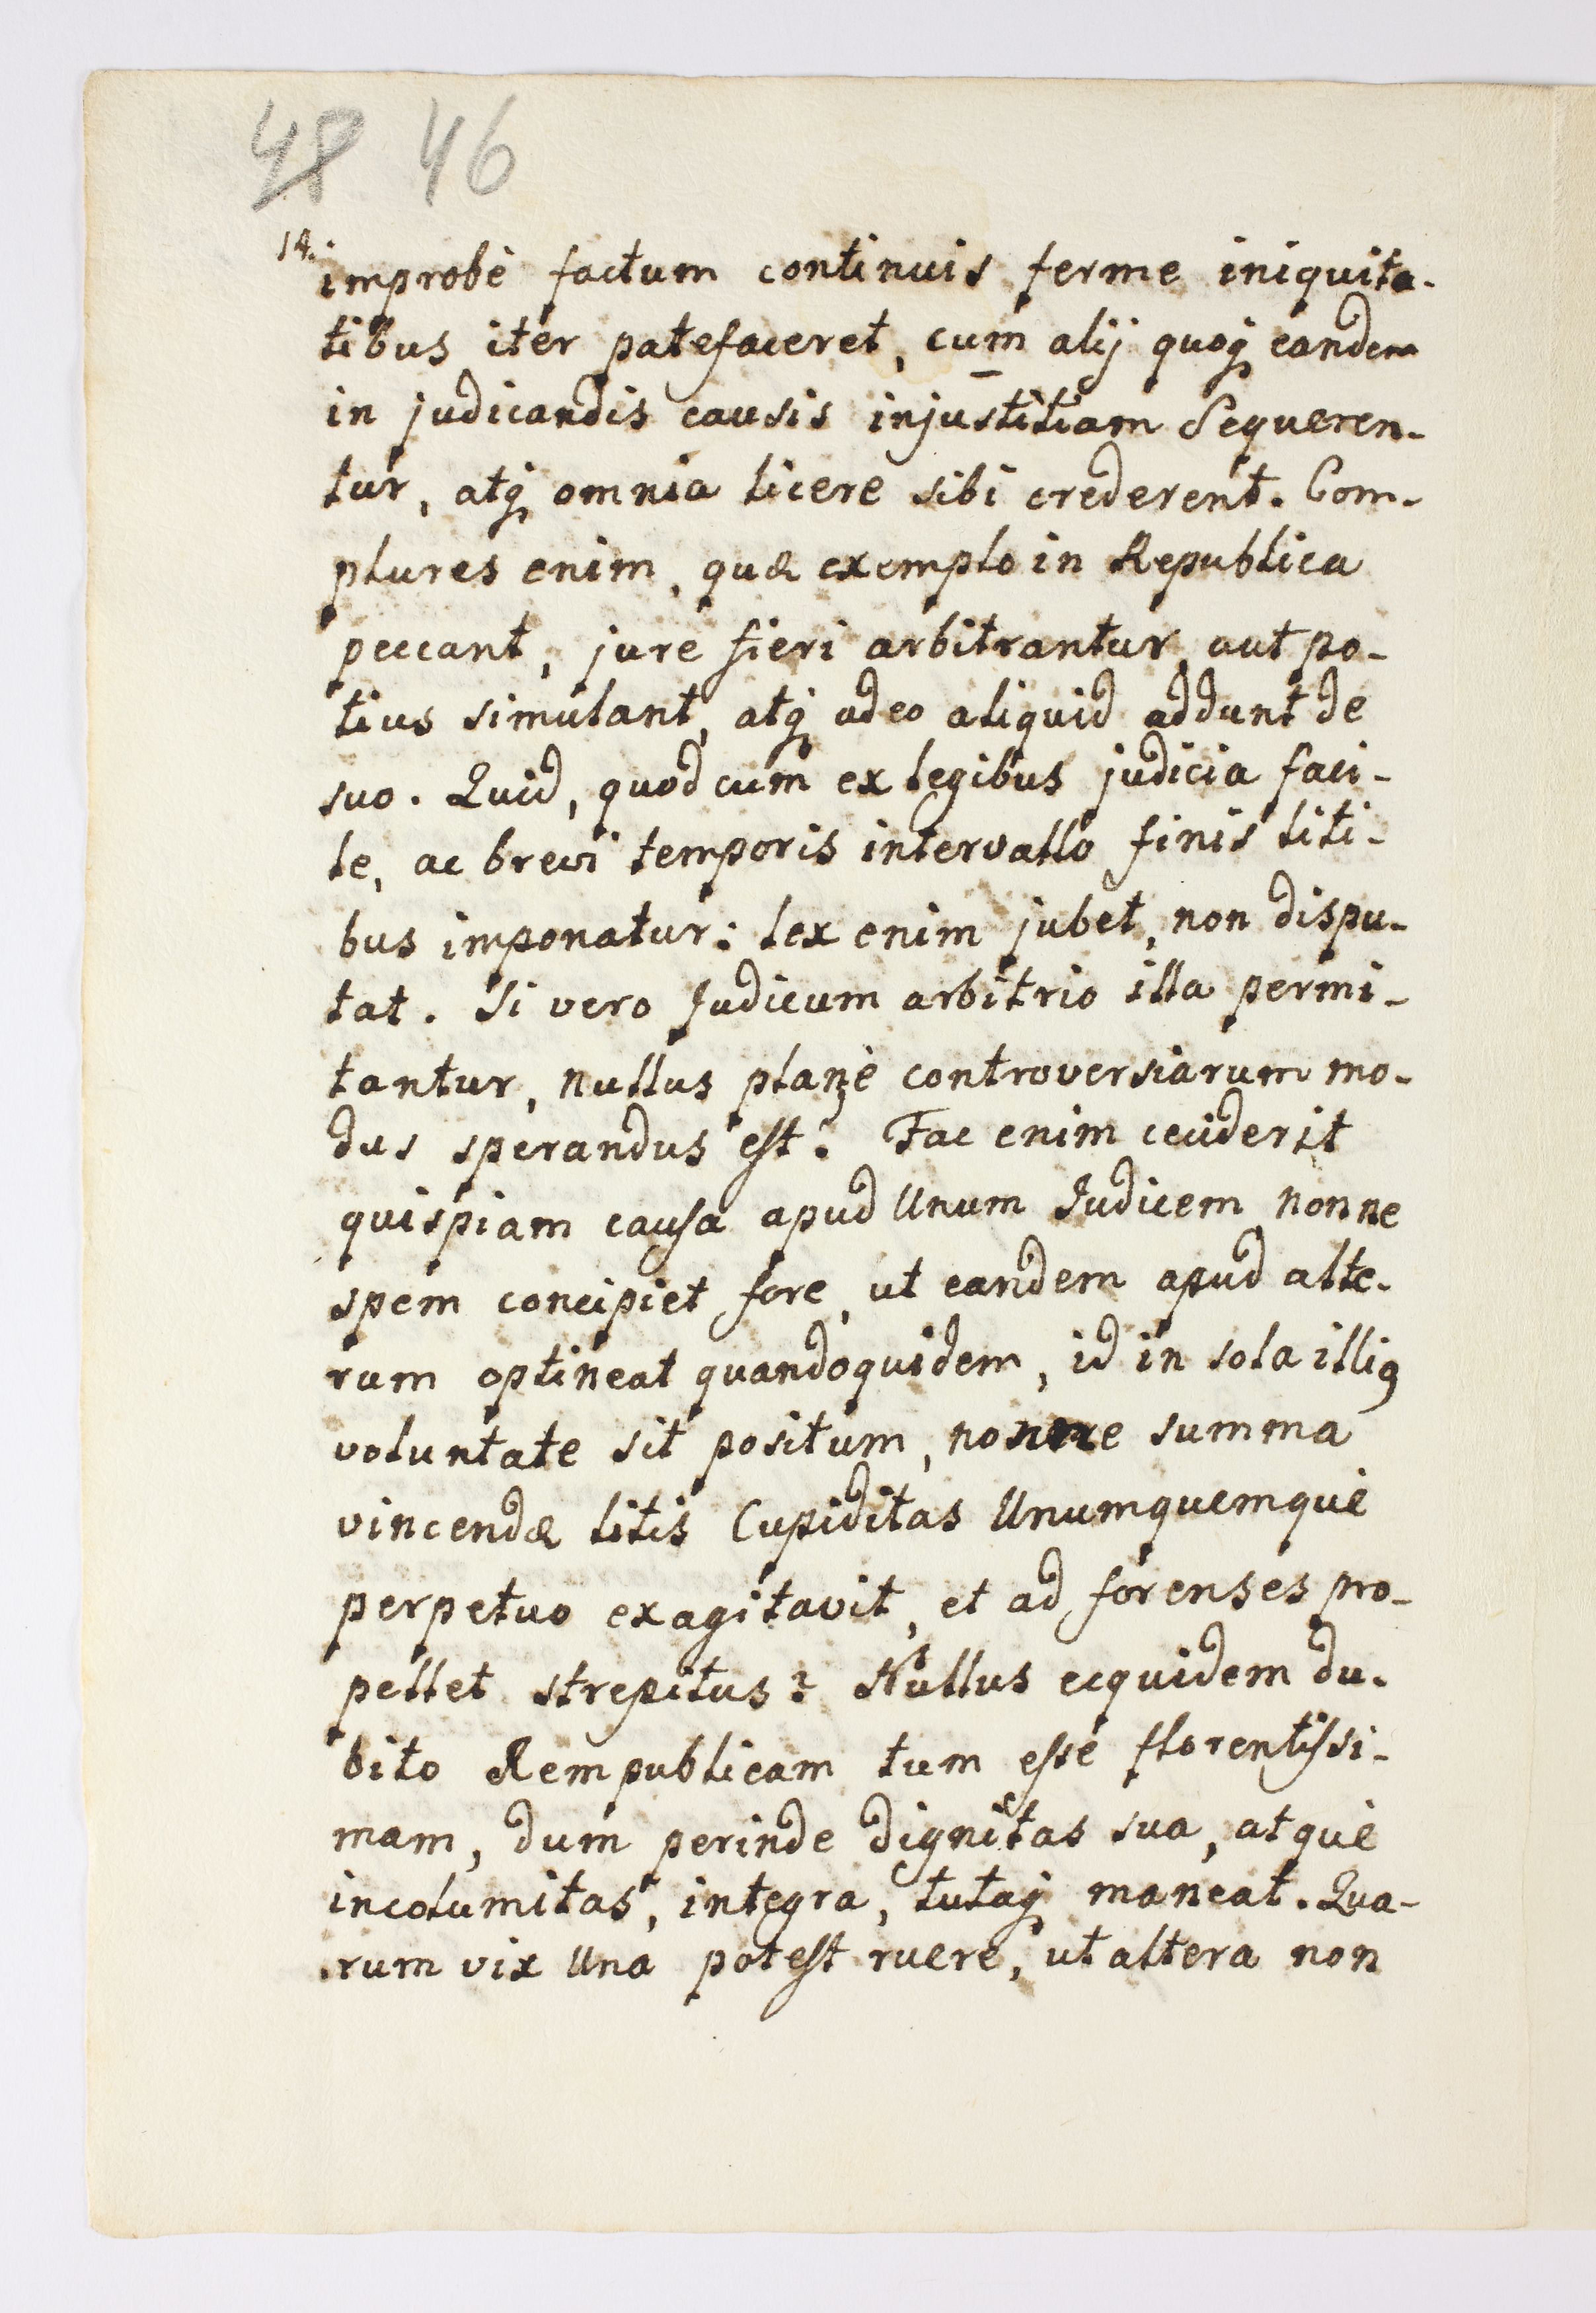 48 46
14.
improbè factum continuis ferme iniquita-
tibus iter patefaceret, cum alij quoq́ eandem
in judicandis causis injustitiam Sequeren-
tur, atq́ omnia licere sibi crederent. Com-
plures enim, quæ exemplo in Republica
peccant, jure fieri arbitrantur, aut po-
tius simulant, atq́ adeo aliquid addunt de
suo. Quid, quod cum ex legibus judicia faci-
le, ac brevi temporis intervallo finis liti-
bus imponatur: lex enim jubet, non dispu-
tat. Si vero Judicum arbitrio illa permi-
tantur, nullus planè controversiarum mo-
dus sperandus est? Fac enim ceciderit
quispiam causa apud Unum Judicem, nonne
spem concipiet fore, ut eandem apud alte-
rum optineat quandoquidem, id in sola illiꝰ
voluntate sit positum, nonne summa
vincendæ litis Cupiditas Unumquemque
perpetuo exagitavit, et ad forenses pro-
pellet strepitus? Nullus ecquidem du-
bito Rempublicam tum esse florentissi-
mam, dum perinde dignitas sua, atque
incolumitas, integra, tutaq́ maneat. Qua-
rum vix Una potest ruere, ut altera non